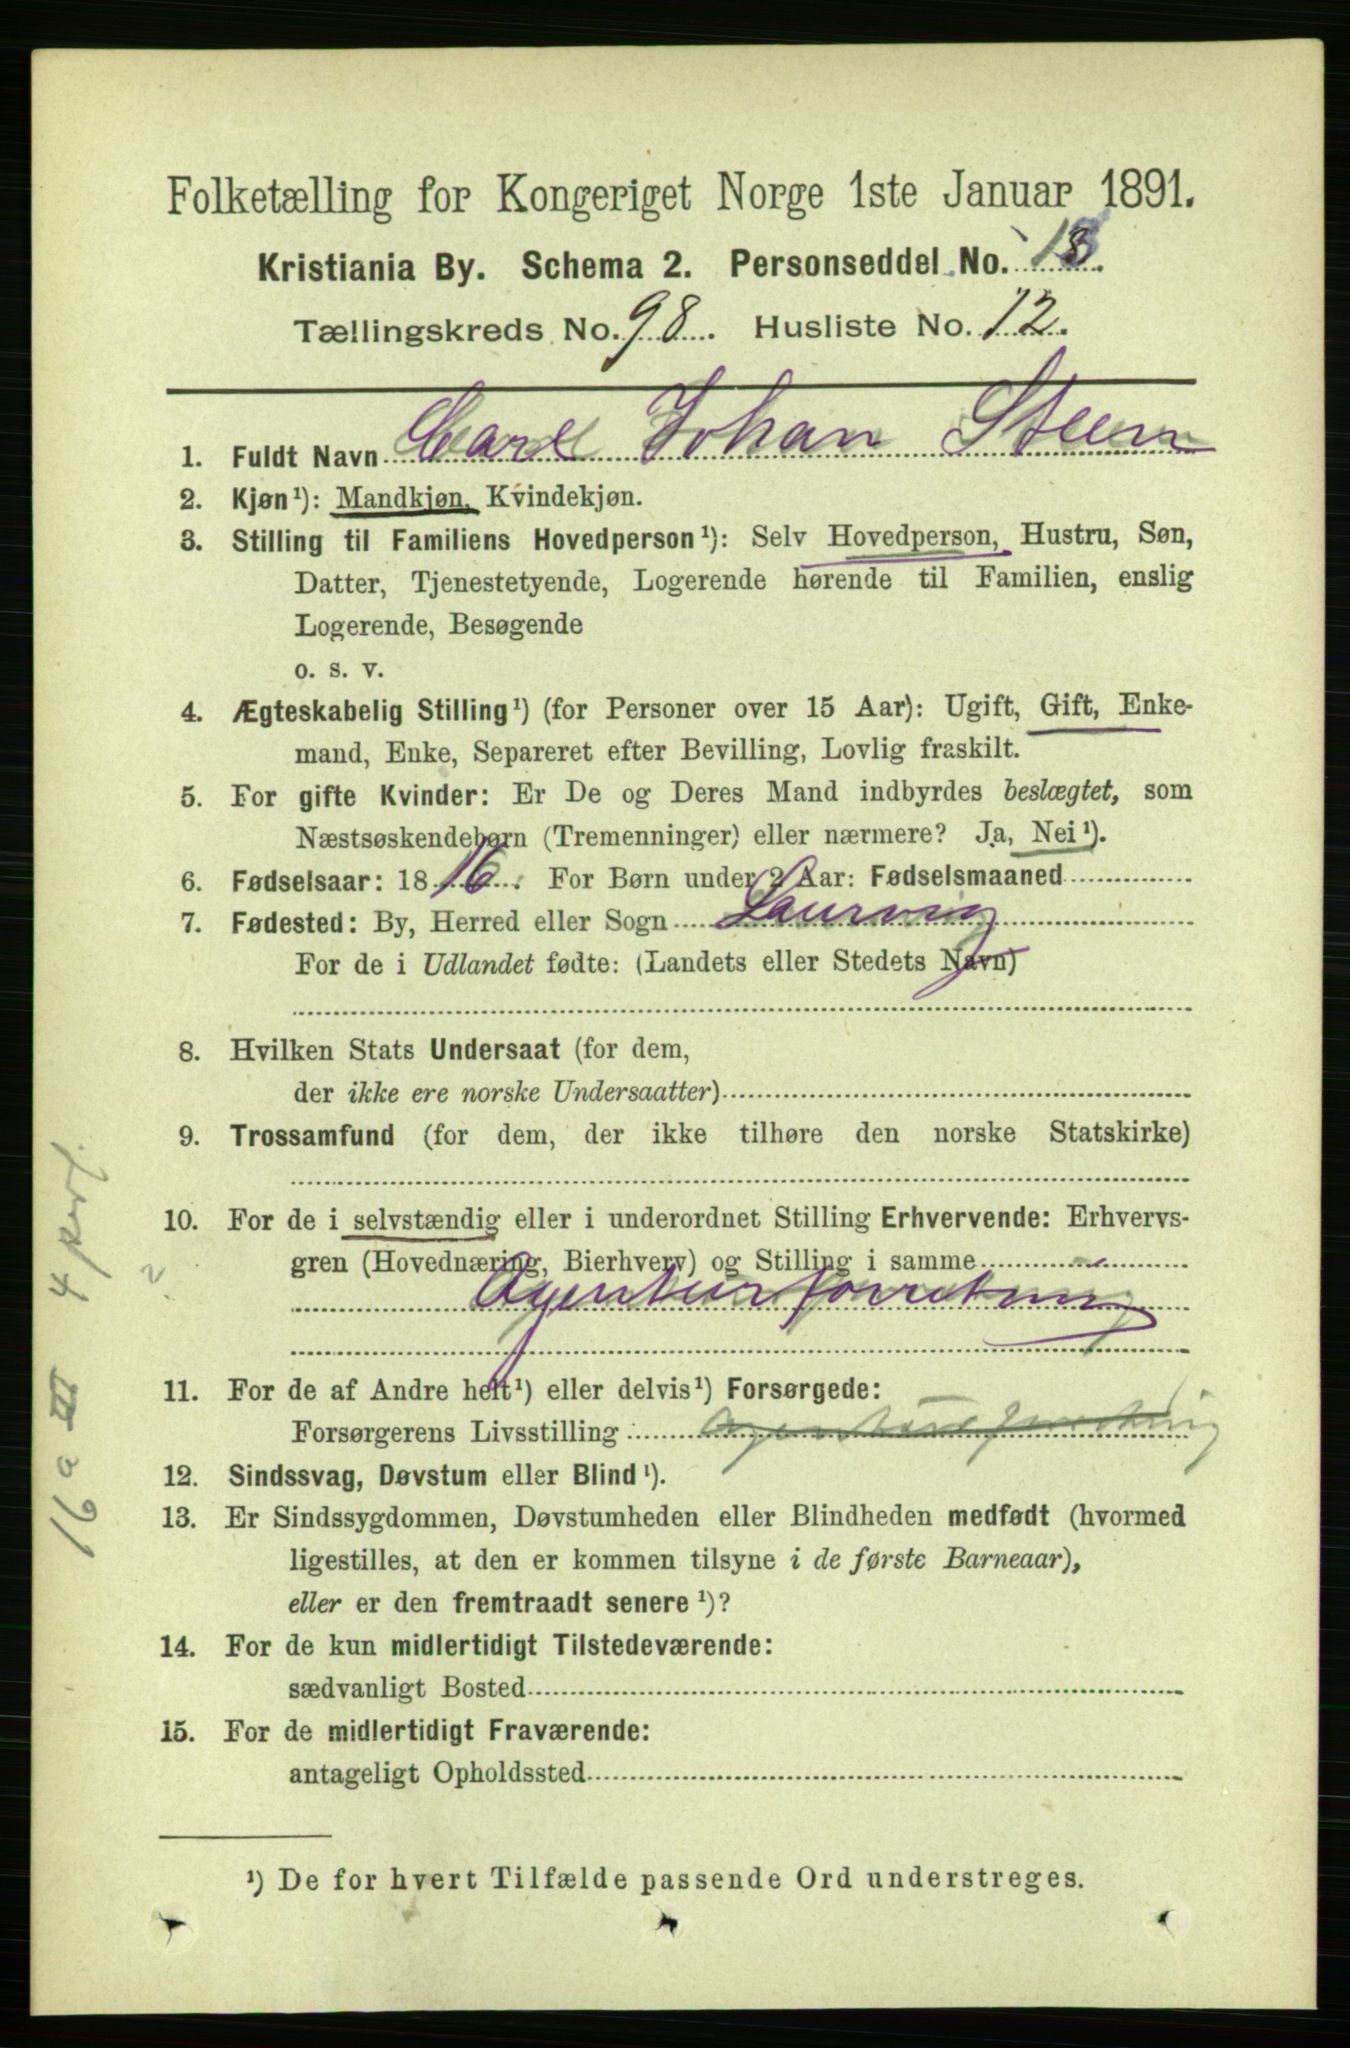 Folketælling for Kongeriget Norge 1ste Januar 1891.
Kristiania By. Schema 2. Personseddel No. 13.
Tællingskreds No. 98. Husliste No. 12.
1. Fuldt Navn Carl Johan Steen
2. Kjøn¹): Mandkjøn, Kvindekjøn.
3. Stilling til Familiens Hovedperson¹): Selv Hovedperson, Hustru, Søn,
Datter, Tjenestetyende, Logerende hørende til Familien, enslig
Logerende, Besøgende
o. s. v.
4. Ægteskabelig Stilling¹) (for Personer over 15 Aar): Ugift, Gift, Enke-
mand, Enke, Separeret efter Bevilling, Lovlig fraskilt.
5. For gifte Kvinder: Er De og Deres Mand indbyrdes beslægtet, som
Næstsøskendebørn (Tremenninger) eller nærmere? Ja, Nei¹).
6. Fødselsaar: 1816. For Børn under 2 Aar: Fødselsmaaned
7. Fødested: By, Herred eller Sogn Laurvig
For de i Udlandet fødte: (Landets eller Stedets Navn)
8. Hvilken Stats Undersaat (for dem,
der ikke ere norske Undersaatter)
9. Trossamfund (for dem, der ikke tilhøre den norske Statskirke)
10. For de i selvstændig eller i underordnet Stilling Erhvervende: Erhvervs-
gren (Hovednæring, Bierhverv) og Stilling i samme
Agenturforretning
11. For de af Andre helt¹) eller delvis¹) Forsørgede:
Forsørgerens Livsstilling Agenturforretning
12. Sindssvag, Døvstum eller Blind¹).
13. Er Sindssygdommen, Døvstumheden eller Blindheden medfødt (hvormed
ligestilles, at den er kommen tilsyne i de første Barneaar),
eller er den fremtraadt senere¹)?
14. For de kun midlertidigt Tilstedeværende:
sædvanligt Bosted
15. For de midlertidigt Fraværende:
antageligt Opholdssted
¹) De for hvert Tilfælde passende Ord understreges.
16 a II 4